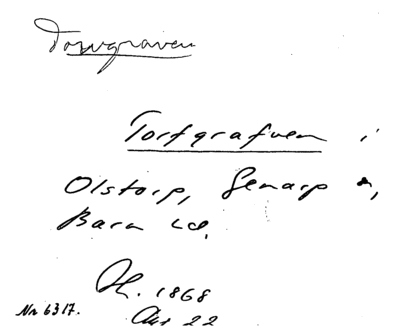 Torvgraven
Torfgrafven i
Olstorp, Genarp s,
Bara hd.
H. 1868
Akt 22
Nr 6317.